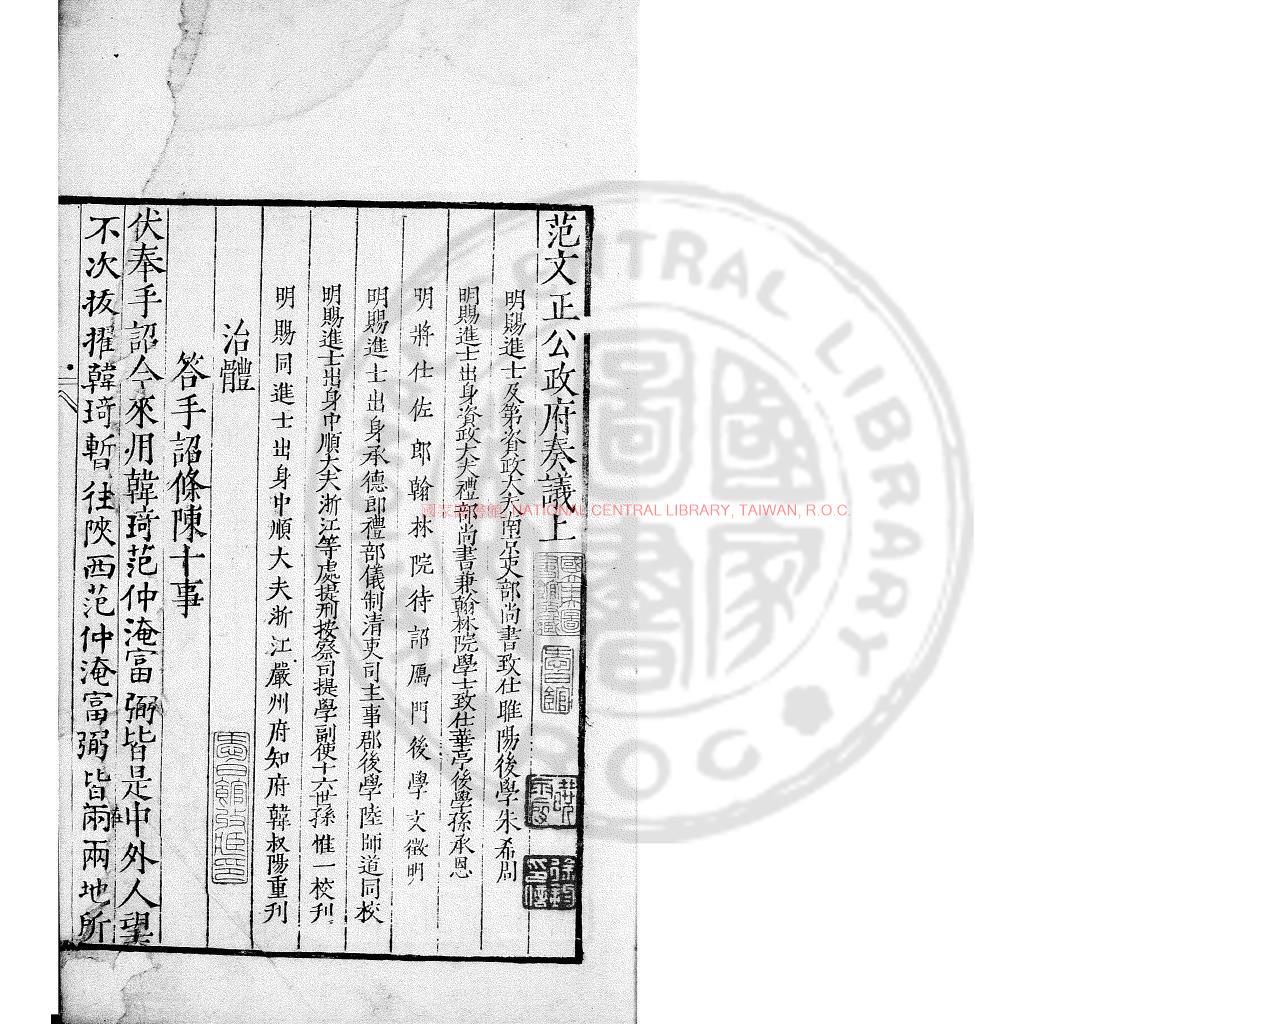 范文正公政府奏議上
明賜進士及第資政大夫南京吏部尚書致仕睢陽後學朱希周
明賜進士出身資政大夫禮部尚書兼翰林院學士致仕華亭後學孫承恩
明將仕佐郎翰林院待詔鴈門後學文徵明
明賜進士出身承德郎禮部儀制清吏司主事郡後學陸師道同校
明賜進士出身中順大夫浙江等處提刑按察司提學副使十六世孫惟一校刋
明賜同進士出身中順大夫浙江嚴州府知府韓叔陽重刋
治體
答手詔條陳十事
伏奉手詔今來用韓琦范仲淹富弼皆是中外人望
不次拔擢韓琦暫往陝西范仲淹富弼皆在兩地所
國家圖書館, NATIONAL CENTRAL LIBRARY, TAIWAN, R.O.C
NATIONAL CENTRAL LIBRARY
ROC
國家圖書館